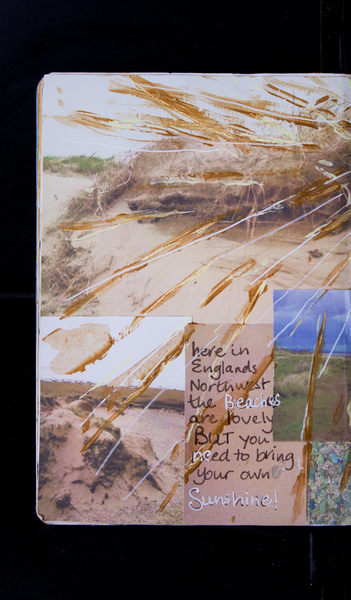 here in
Englands
Northwest
the Beaches
are lovely
BUT you
need to bring
your own
Sunshine!